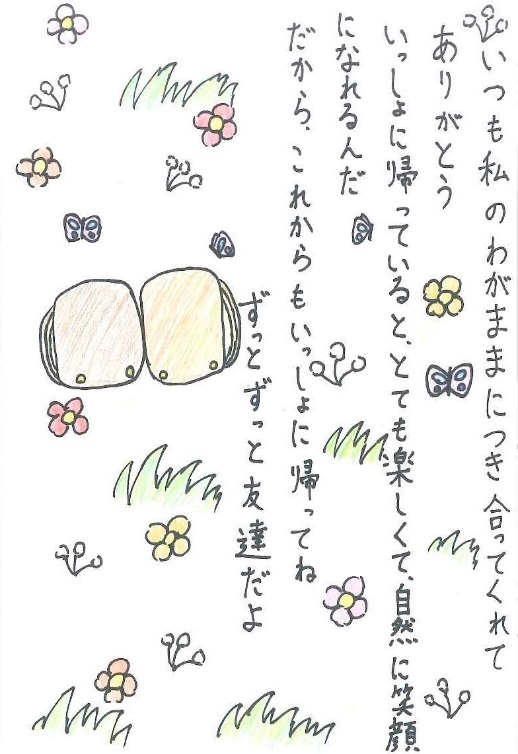 いつも私のわがままにつき合ってくれて
ありがとう
いっしょに帰っていると、とても楽しくて、自然に笑顔
になれるんだ
だから、これからもいっしょに帰ってね
ずっとずっと友達だよ